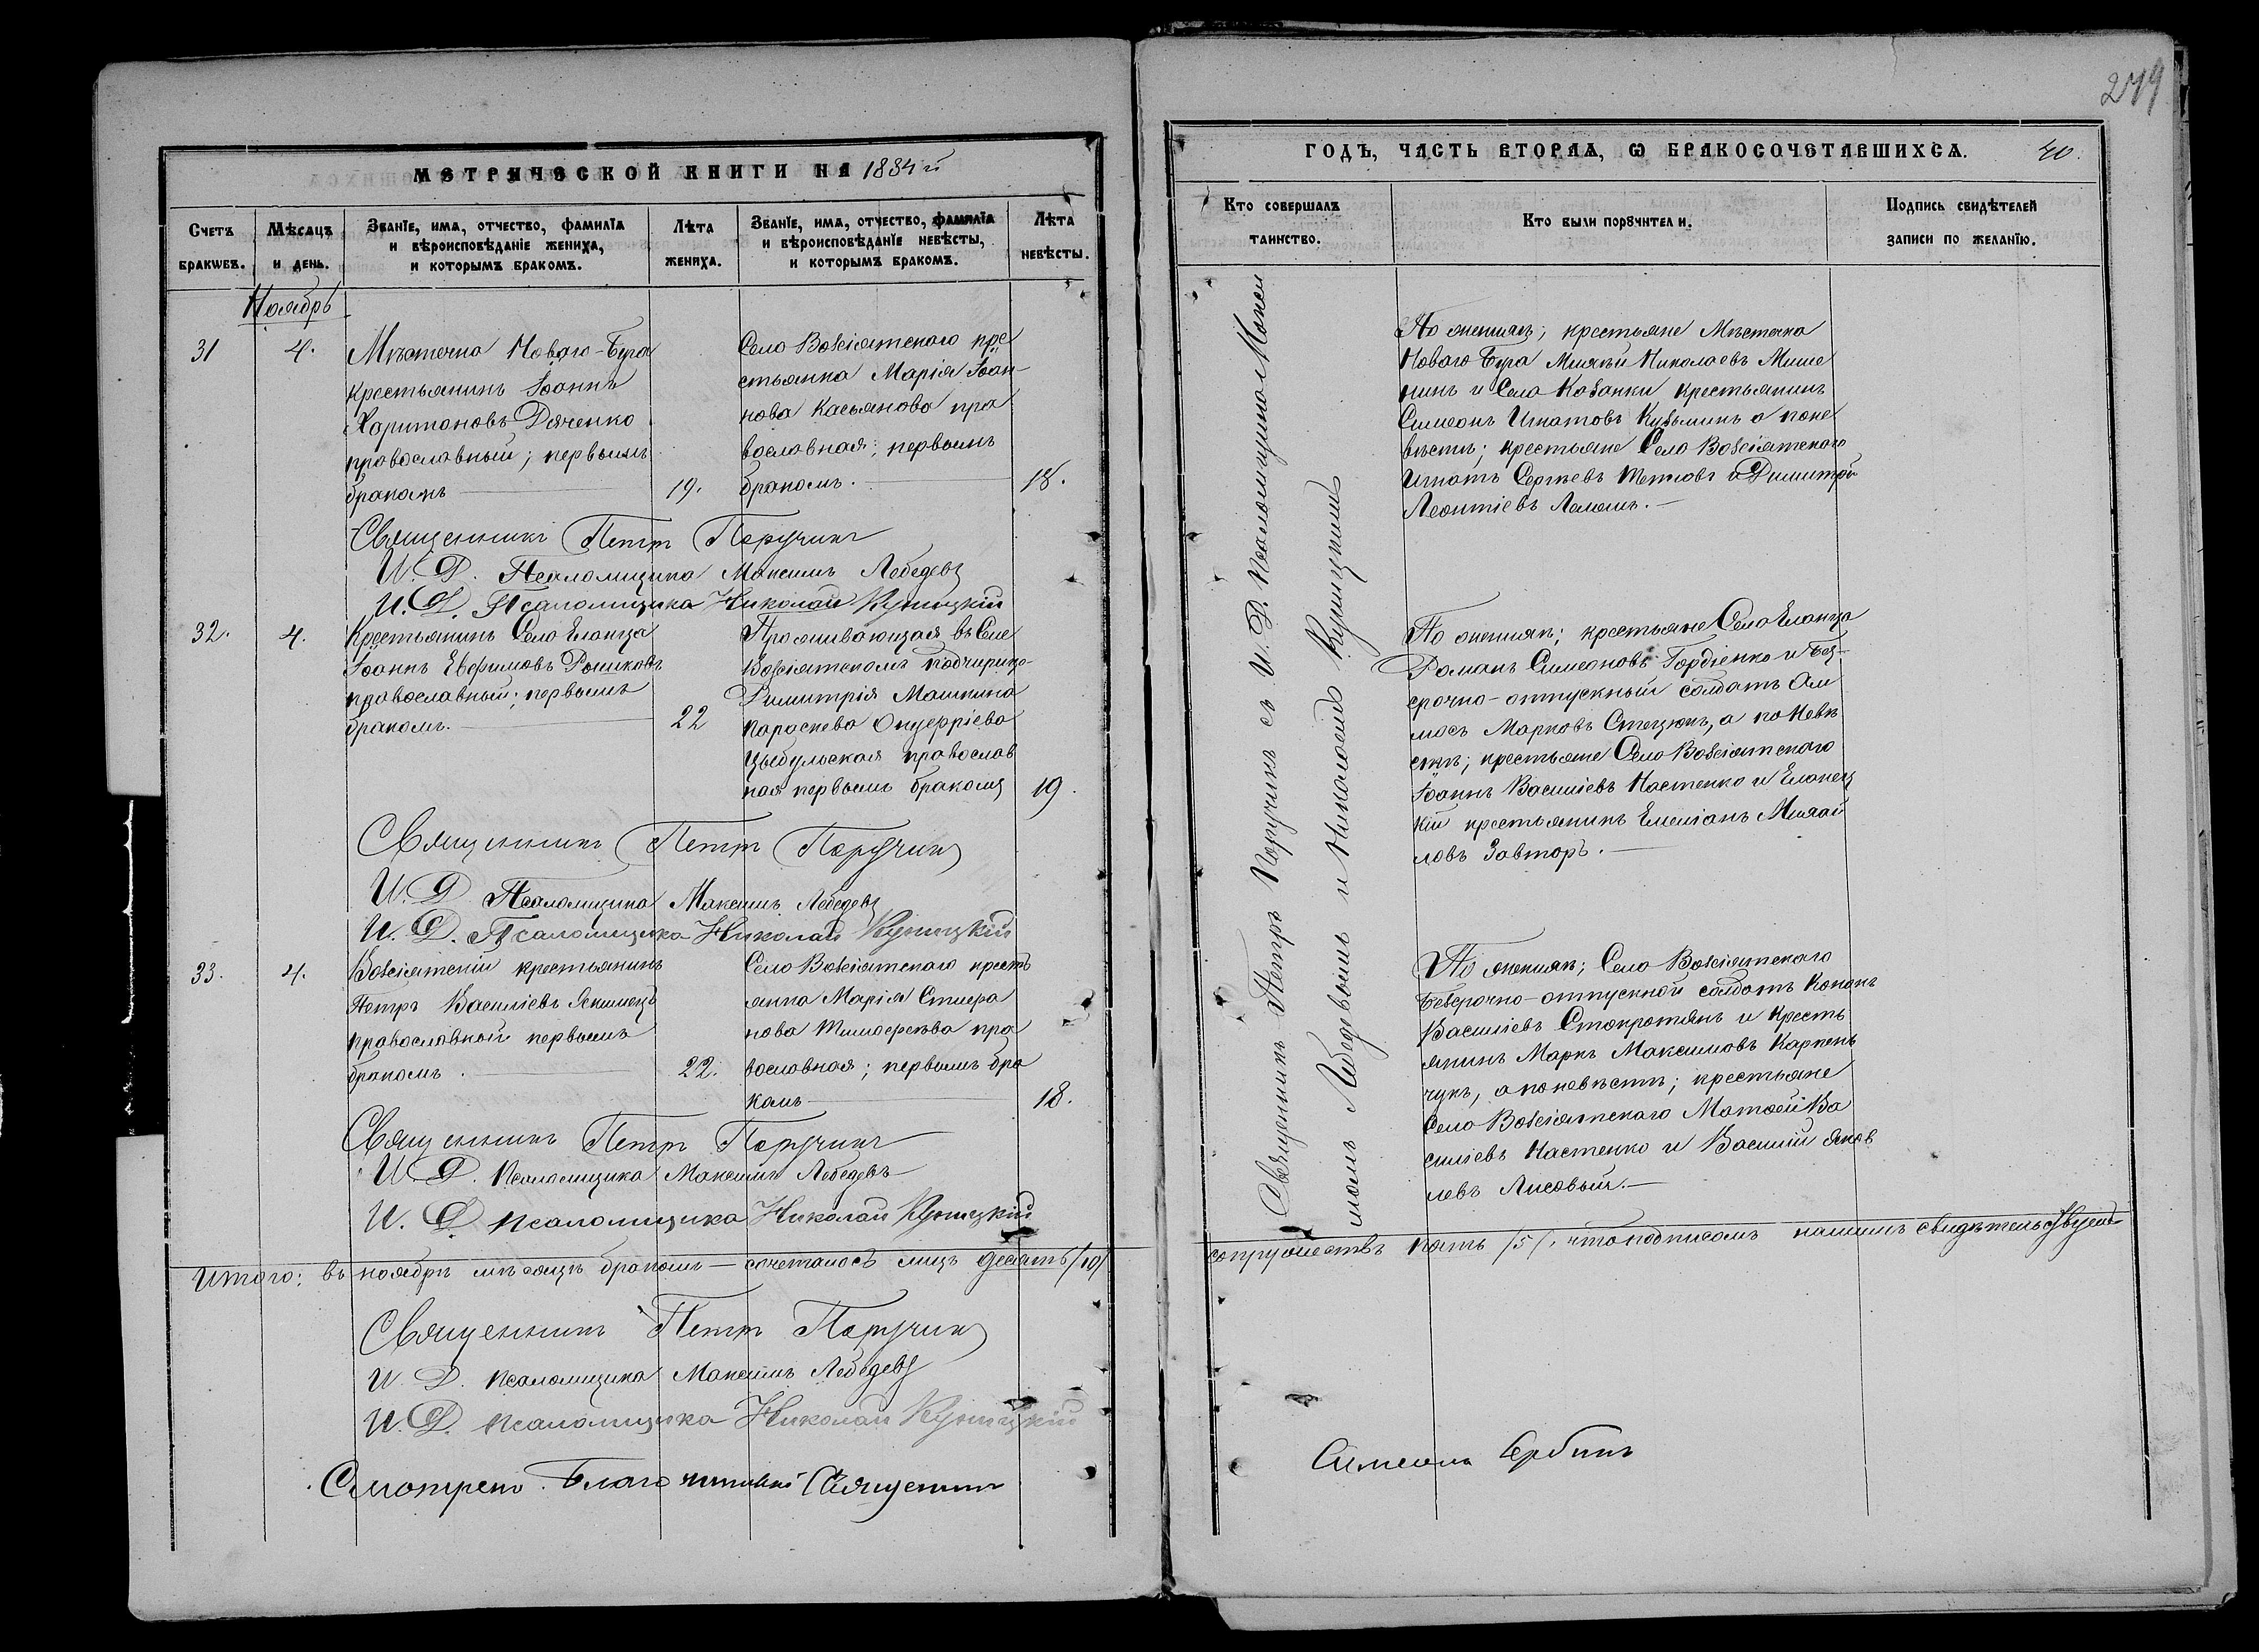 МЕТРИЧЕСКОЙ КНИГИ НА 1884 й
Счетъ браковъ.
Мѣсяцъ и день.
Званїе, имя, отчество, фамилїя и вѣроисповѣданїе жениха, и которымъ бракомъ.
Лѣта жениха.
Званїе, имя, отчество, фамилїя и вѣроисповѣданїе невѣсты, и которымъ бракомъ.
Лѣта невѣсты.
Ноябрь
31
4.
Мѣстечка Новаго-Буга
крестьянинъ Іоаннъ
Харитоновъ Дяченко
православный; первымъ
бракомъ
19.
Села Возсіятскаго кре
стьянка Марія Іоан-
нова Касьянова пра
вославная; первымъ
бракомъ.
18.
Священникъ Петръ Поручикъ
И. Д. Псаломщика Максимъ Лебедевъ
И. Д. Псаломщика Николай Куницкій
32.
4.
Крестьянинъ Села Еланца
Іоаннъ Евфимовъ
православный; первымъ
бракомъ.
22
Проживающая въ Селе
Возсіятскомъ
Димитрія Машкина
Параскева Онуфріева
Цыбульская православ
ная первымъ бракомъ
19.
Священникъ Петръ Поручикъ
И. Д. Псаломщика Максимъ Лебедевъ
И. Д. Псаломщика Николай Куницкій
33.
4.
Возсіятскій крестьянинъ
Петръ Василіевъ Якимецъ
православной первымъ
бракомъ.
22.
Села Возсіятскаго кресть
янка Марія Стефа
нова Тимофеева пра
вославная; первымъ бра
комъ
18.
Священникъ Петръ Поручикъ
И. Д. Псаломщика Максимъ Лебедевъ
И. Д. Псаломщика Николай Куницкій
Итого: въ ноябрѣ мѣсяцѣ бракомъ – сочеталось лицъ десять /10/
Священникъ Петръ Поручикъ
И. Д. Псаломщика Максимъ Лебедевъ
И. Д. Псаломщика Николай Куницкій
Смотрелъ. Благочинный Священникъ
279
ГОДЪ, ЧАСТЬ ВТОРАЯ, Ѡ БРАКОСОЧЕТАВШИХСЯ.
40.
Кто совершалъ таинство.
Кто были поручители.
Подпись свидѣтелей записи по желанїю.
Священникъ Петръ Поручикъ съ И. Д. Псаломщика Макси
момъ Лебедевымъ и Николаемъ Куницкимъ
По женихѣ; крестьяне Мѣстечка
Новаго Буга Николаевъ Мише
нинъ и Села Козанки крестьянинъ
Симеонъ Игнатовъ Кузьминъ а по не
вѣстѣ; крестьяне Села Возсіятскаго
Игнатъ Сергѣевъ и Димитрій
Леонтіевъ
По женихѣ; крестьяне Села Еланца
Романъ Симеоновъ Гордіенко и Без-
срочно-отпускный солдатъ Ам
мосъ Марковъ Стецюкъ, а по Невѣ
стѣ; крестьяне Села Возсіятскаго
Іоаннъ Василіевъ Настенко и Еланец
кій крестьянинъ Емеліанъ Михаи
ловъ Завторъ.
По женихѣ; Села Возсіятскаго
Безсрочно-отпускной солдатъ Кононъ
Василіевъ и кресть
янинъ Маркъ Максимовъ Карпень
чукъ, а по невѣстѣ; крестьяне
Села Возсіятскаго Матвей Ва
силіевъ Настенко и Василій Яков
левъ Лисовый.
супружествъ пять /5/, что подписомъ нашимъ свидѣтельствуемъ
Симеонъ Сербинъ